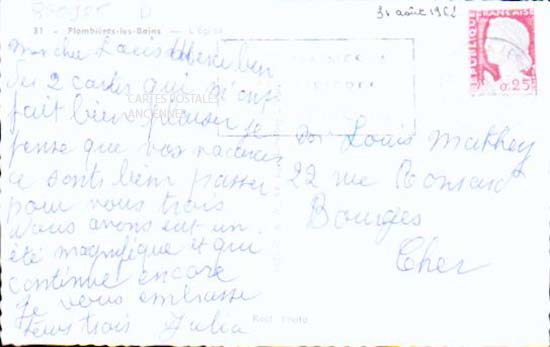 31 août 1962
31 - Plombières-les-Bains - L'Ég
mon cher Louis Merci ben
des 2 cartes qui m'ont
fait bien plaisir je
CARTES POSTALES
ANCIENNES
pense que vos vacances
ce sont bien passer
pour vous trois
Nous avons eut un
été magnifique et qui
continue encore
Je vous embrasse
tous trois Julia
REPUBLIQUE FRANÇAISE
0,25
Louis Mathey
22 rue Ronsard
Bourges
Cher
Photo